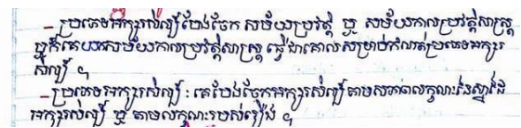 - ប្រភេទអក្សរសិល្ប៍បែងចែក សម័យប្រវត្តិ ឬ សម័យកាលប្រវត្តិសាស្ត្រ
ឬគឺគេយកសម័យកាលប្រវត្តិសាស្ត្រ ធ្វើជាគោលសម្រាប់កំណត់ប្រភេទអក្សរ
សិល្ប៍ ។
- ប្រភេទអក្សរសិល្ប៍ : គេបែងចែកអក្សរសិល្ប៍តាមសភាពលក្ខណៈនៃស្នាដៃ
អក្សរសិល្ប៍ ឬ តាមលក្ខណៈរបស់រឿង ។